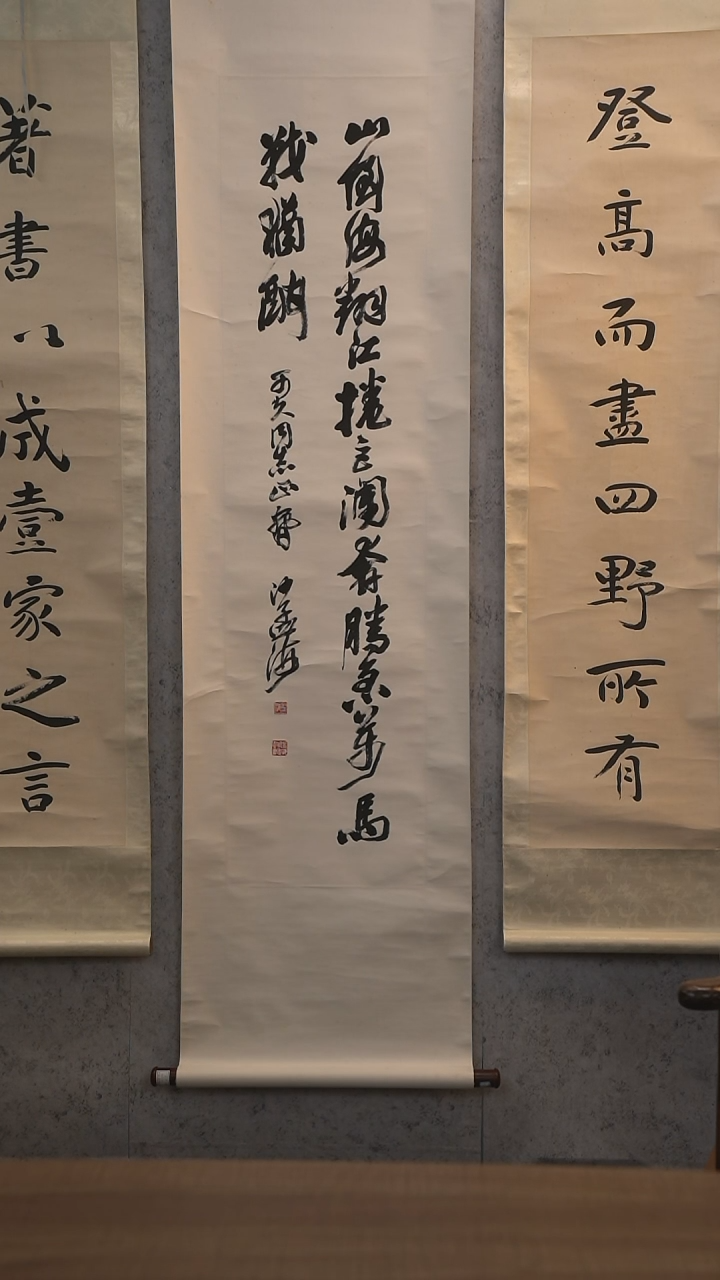 登高而盡四野所有
山倒海翻江捲巨瀾奔騰急萬馬
戰猶酣 久同志正 沙孟海
著書以成壹家之言